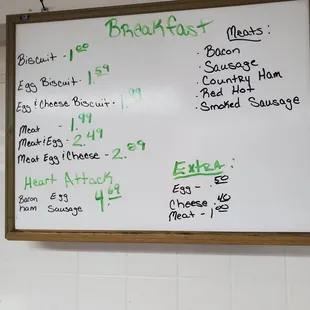 Breakfast
Biscuit - 1.00
Egg Biscuit - 1.59
Egg & Cheese Biscuit - 1.99
Meat - 1.99
Meat & Egg - 2.49
Meat Egg & Cheese - 2.89
Heart Attack
Bacon Egg
Ham Sausage 4.69
Meats:
· Bacon
· Sausage
· Country Ham
· Red Hot
· Smoked Sausage
Extra:
Egg - .50
Cheese .40
Meat - 1.00